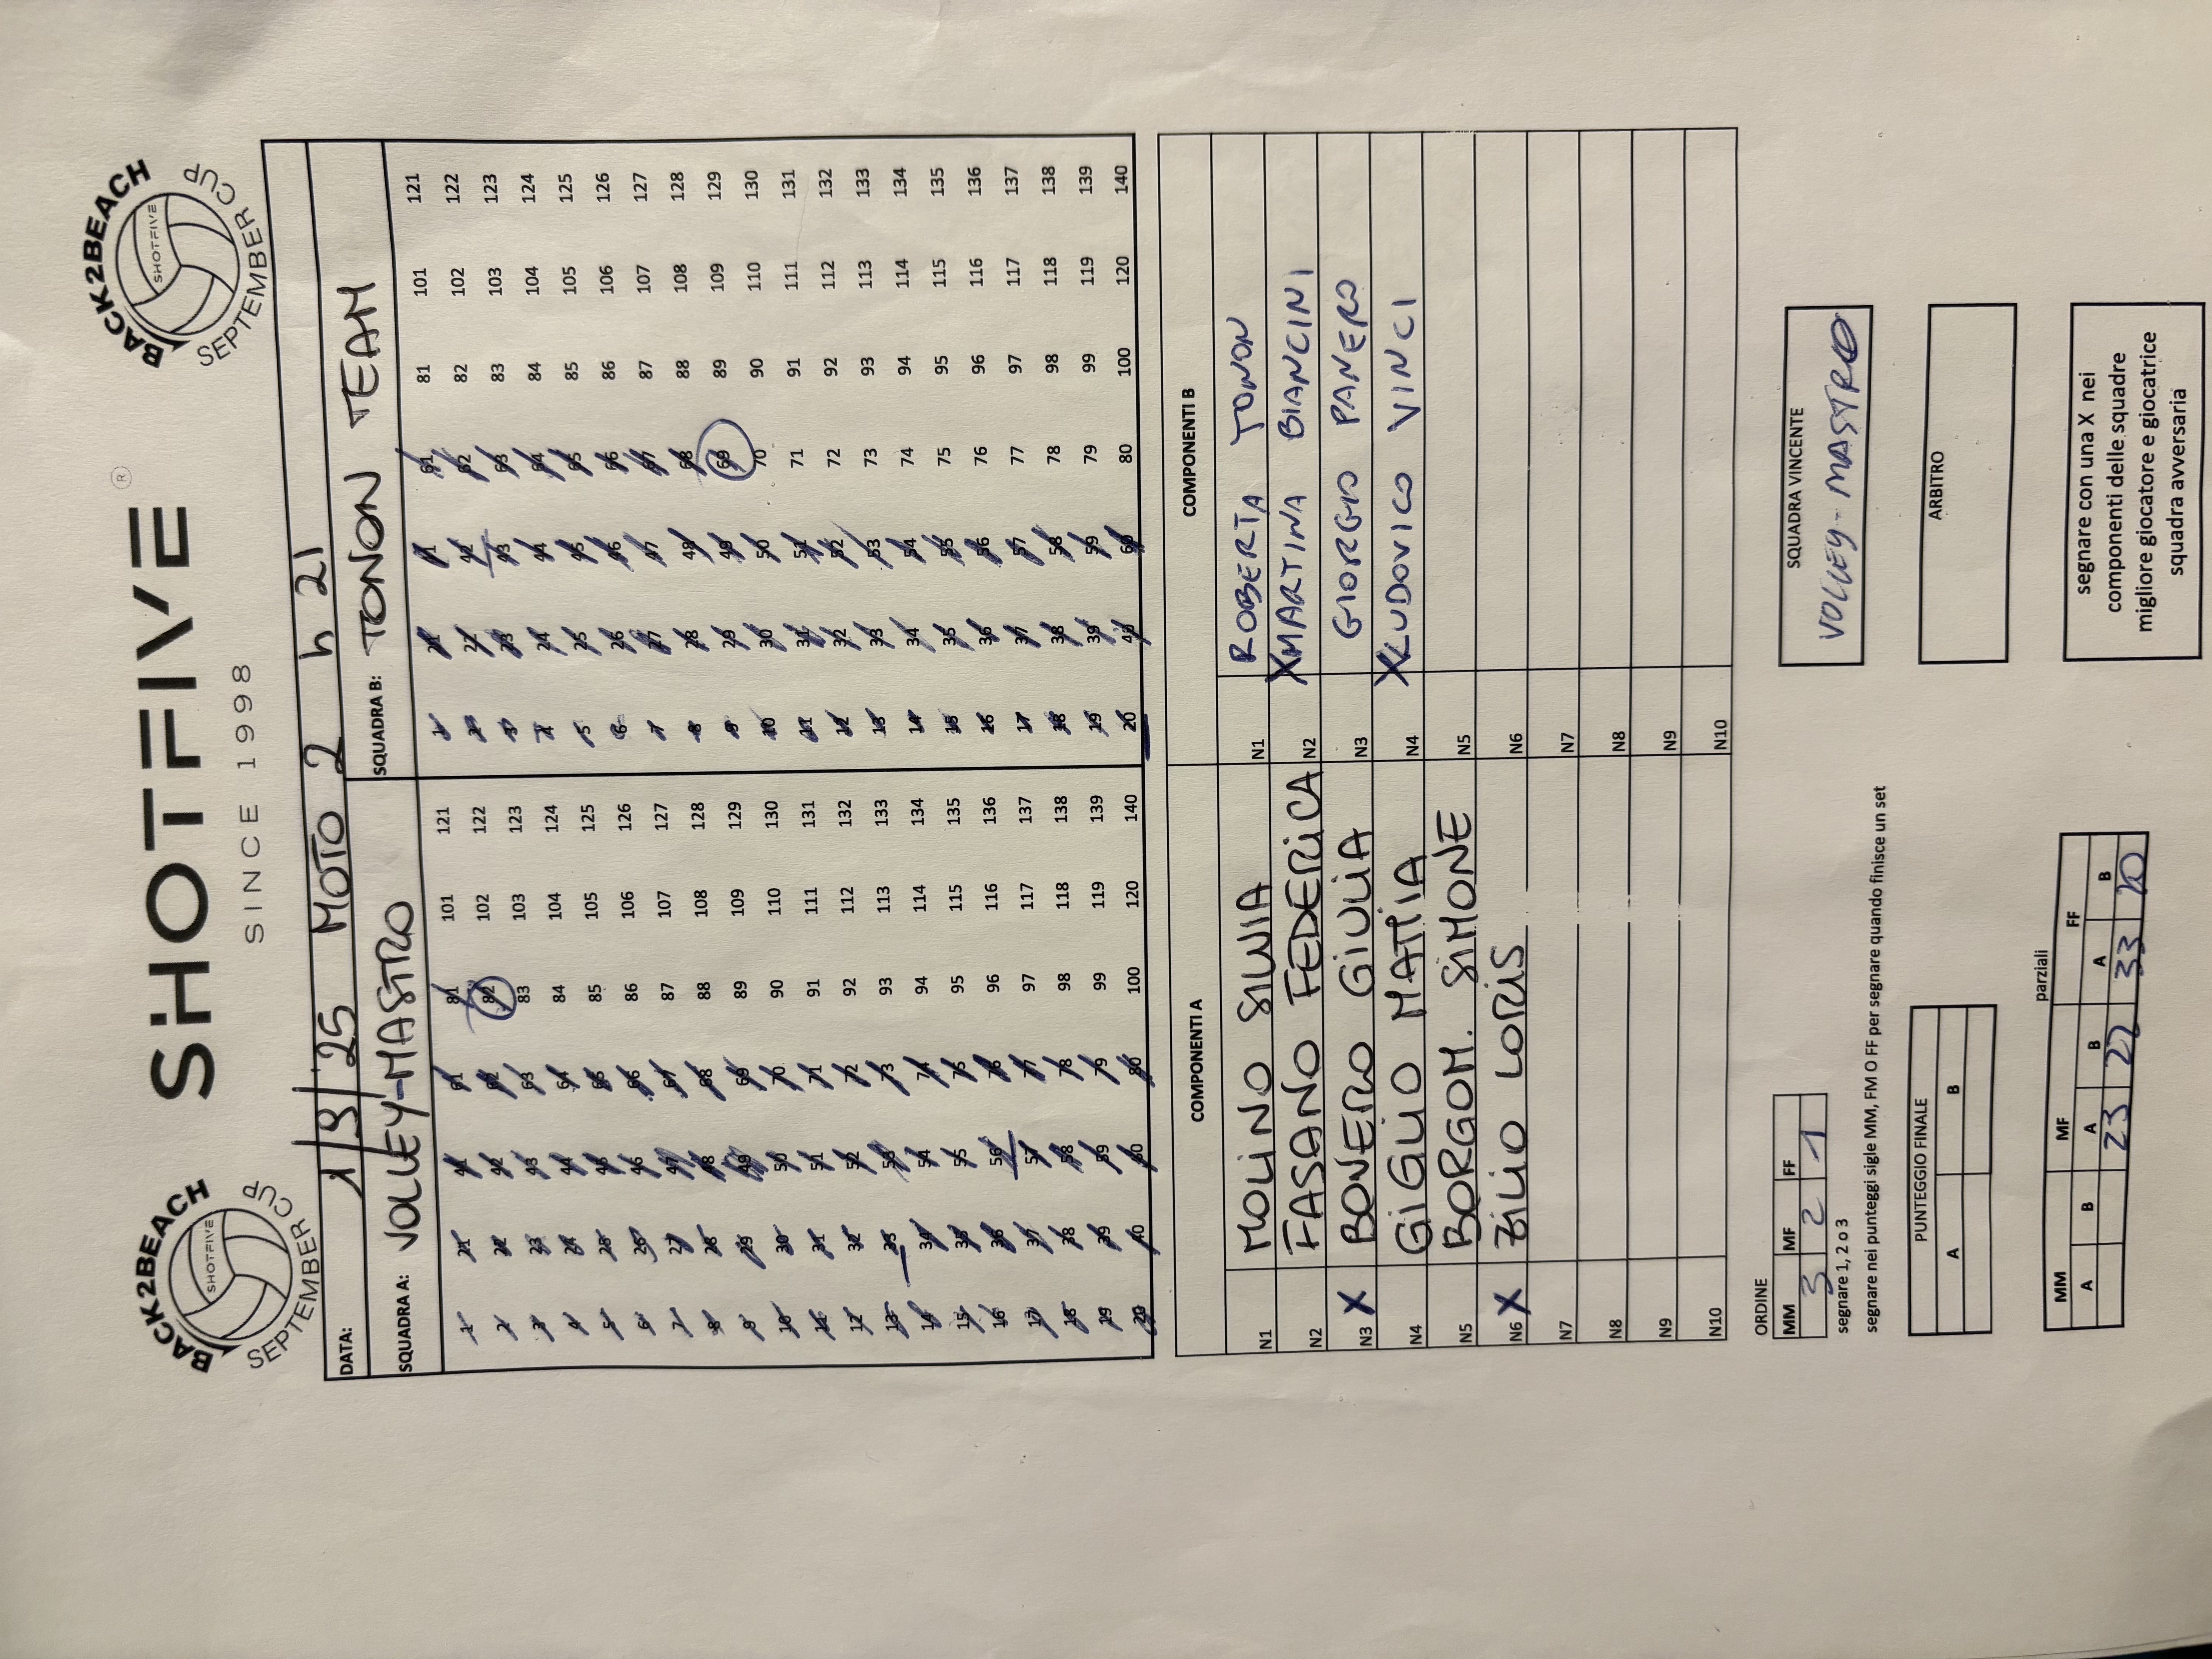 BACK2BEACH
SHOTFIVE
SEPTEMBER CUP
SHOTFIVE ®
SINCE 1998
BACK2BEACH
SHOTFIVE
SEPTEMBER CUP
DATA: 1/9/25 MOTO 2 h 21
SQUADRA A: VOLLEY-MASTRO SQUADRA B: TONON TEAM
1 21 41 61 81 101 121 1 21 41 61 81 101 121
2 22 42 62 82 102 122 2 22 42 62 82 102 122
3 23 43 63 83 103 123 3 23 43 63 83 103 123
4 24 44 64 84 104 124 4 24 44 64 84 104 124
5 25 45 65 85 105 125 5 25 45 65 85 105 125
6 26 46 66 86 106 126 6 26 46 66 86 106 126
7 27 47 67 87 107 127 7 27 47 67 87 107 127
8 28 48 68 88 108 128 8 28 48 68 88 108 128
9 29 49 69 89 109 129 9 29 49 69 89 109 129
10 30 50 70 90 110 130 10 30 50 70 90 110 130
11 31 51 71 91 111 131 11 31 51 71 91 111 131
12 32 52 72 92 112 132 12 32 52 72 92 112 132
13 33 53 73 93 113 133 13 33 53 73 93 113 133
14 34 54 74 94 114 134 14 34 54 74 94 114 134
15 35 55 75 95 115 135 15 35 55 75 95 115 135
16 36 56 76 96 116 136 16 36 56 76 96 116 136
17 37 57 77 97 117 137 17 37 57 77 97 117 137
18 38 58 78 98 118 138 18 38 58 78 98 118 138
19 39 59 79 99 119 139 19 39 59 79 99 119 139
20 40 60 80 100 120 140 20 40 60 80 100 120 140
COMPONENTI A COMPONENTI B
N1 MOLINO SILVIA N1 ROBERTA TONON
N2 FASANO FEDERICA N2 X MARTINA BIANCINI
N3 X BONERO GIULIA N3 GIORGIO PANERO
N4 GIGLIO MATTIA N4 X LUDOVICO VINCI
N5 BORGOM. SIMONE N5
N6 X ZILIO LORIS N6
N7 N7
N8 N8
N9 N9
N10 N10
ORDINE
MM MF FF
3 2 1
segnare 1, 2 o 3
segnare nei punteggi sigle MM, FM O FF per segnare quando finisce un set
SQUADRA VINCENTE
VOLLEY-MASTRO
PUNTEGGIO FINALE
A B
ARBITRO
parziali
MM MF FF
A B A B A B
23 22 33 20
segnare con una X nei
componenti delle squadre
migliore giocatore e giocatrice
squadra avversaria